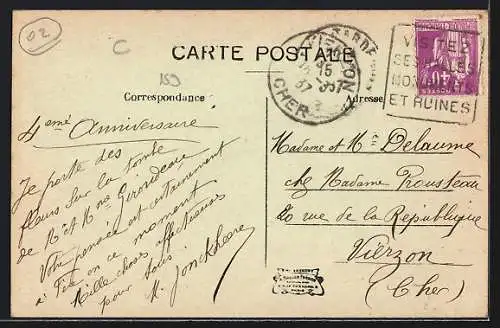 02
C
CARTE POSTALE
159
Correspondance
Adresse
CHER
VISITEZ
ET RUINES
40
4eme Anniversaire
Je porte des
fleurs sur la tombe
de Mr et Mme Girondeau
Votre pensée est certainement
à Féa en ce moment
Mille choses affectueuses
pour tous.
M. Jonckheere
Madame et Mr Delaume
chez Madame Trousseau
20 rue de la République
Vierzon
(Cher)